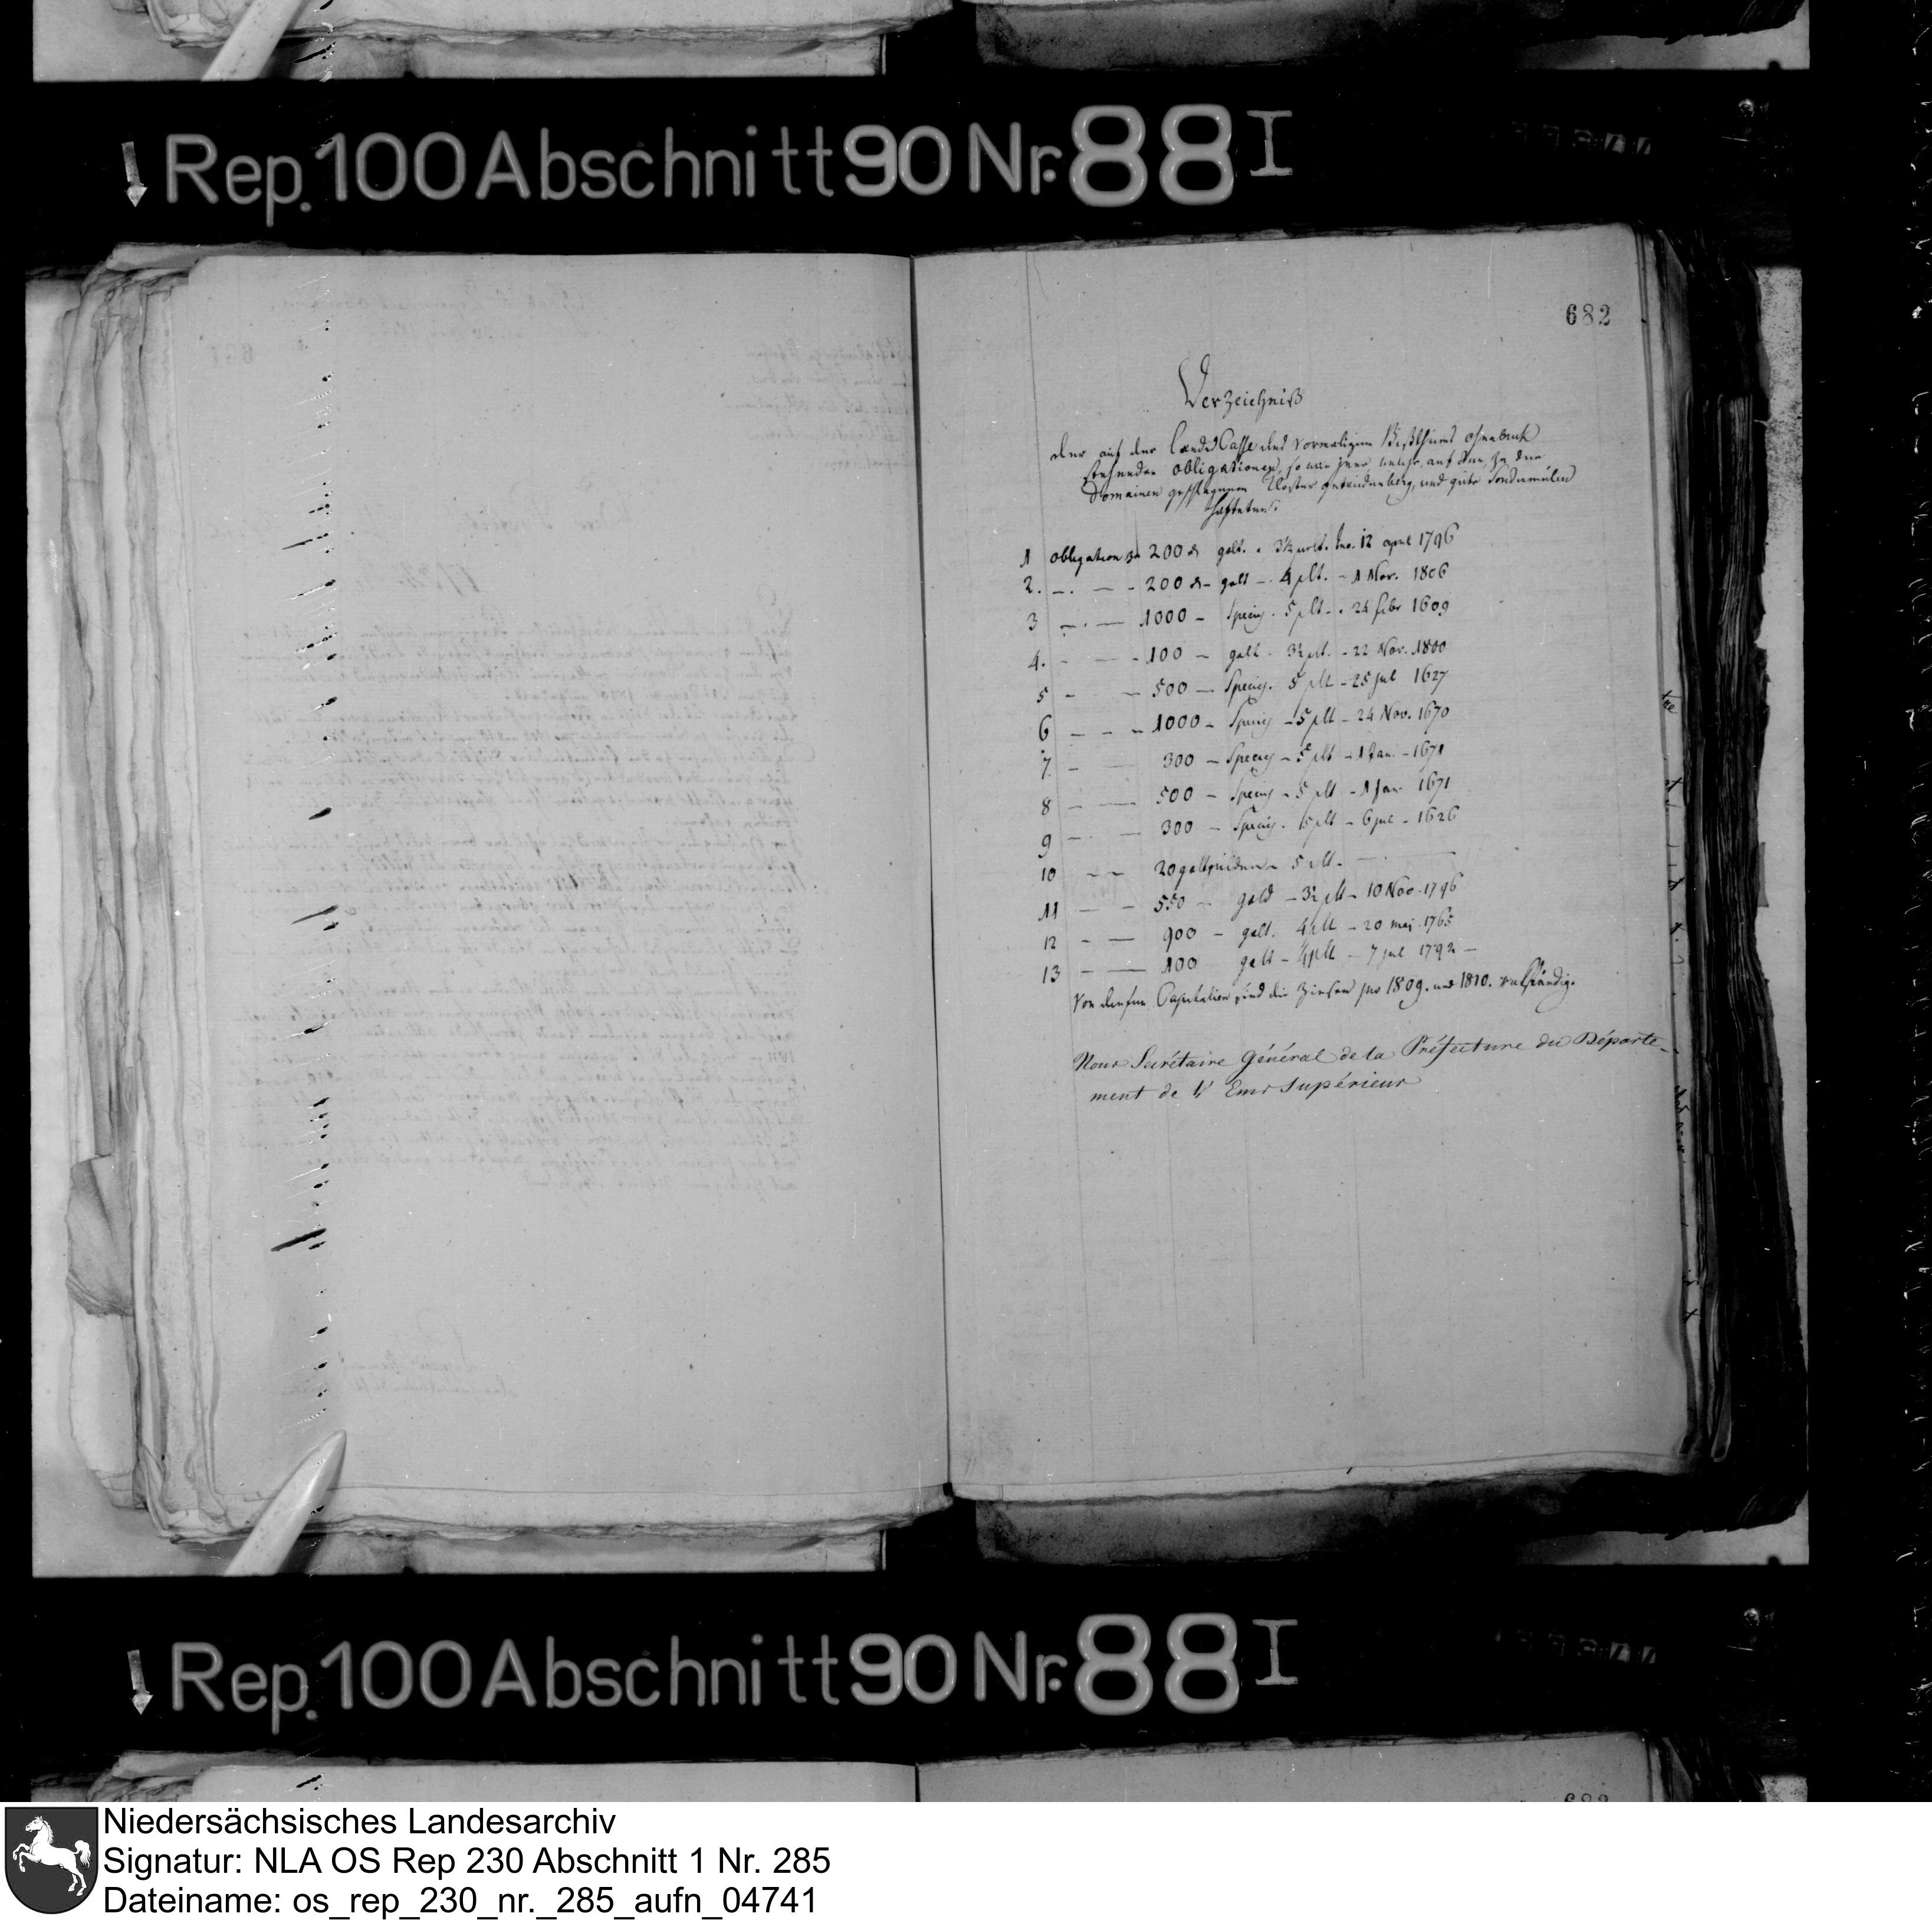 Rep. 100 Abschnitt 90 Nr. 88 I
682
Verzeichniß
der auf der Landes Casse des vormaligen Bißthums Osnabruck
stehenden obligationen, so wie jene welche auf den, zu den
Domainen geschlagenen Kloster gertrudenberg, und gute Sondermülen
hafteten.
1 Obligation zu 200 rt gold. a 3½ prct. de. 12 april 1796
2. — . — - 200 rt - gold - 4 pct. - 1 Nov. 1806
3 — . — 1000 - Specis . 5 pct - . 24 febr 1609
4. - — - 100 - gold . 3½ pct. - 22 Nov. 1800
5 - — 500 — Specis. 5 pct - 25 jul 1627
6 — - - 1000 - Specis - 5 pct - 24 Nov. 1670
7. - — 300 - Specis - 5 pct - 1 Jan. - 1671
8 - — 500 - Specis - 5 pct - 1 Jan 1671
9 - — 300 - Specis . 5 pct - 6 jul - 1626
10 - - 20 goldgulden - 5 pct. —
11 — - 550 - gold - 3½ pct - 10 Nov. 1796
12 - — 900 - gold. 4 pct - 20 maj. 1765
13 - — 100 gold - 4 pct - 7 jul 1792 -
Von diesen Capitalien sind die Zinsen pro 1809. und 1810. rückständig.
Nous Secrétaire Général de la Préfecture du Départe-
ment de l'Ems Supérieur
Rep. 100 Abschnitt 90 Nr. 88 I
682
Niedersächsisches Landesarchiv
Signatur: NLA OS Rep 230 Abschnitt 1 Nr. 285
Dateiname: os_rep_230_nr._285_aufn_04741